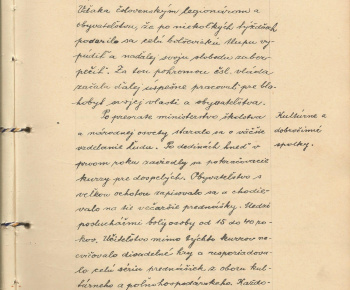 Vďaka čsl. ovenským legionárom a
obyvateľstvu, že po niekoľkých týždňoch
podarilo sa celú bolševickú tlupu vy-
pudiť a naďalej svoju slobodu zabez-
pečiť. Za tou pohromou čsl. vláda
začala ďalej úspešne pracovať pre bla-
hobyt svojej vlasti a obyvateľstva.
Po prevrate ministerstvo školstva
a národnej osvety staralo sa o väčšie
vzdelanie ľudu. Po dedinách hneď v
prvom roku zaviedly sa pokračovacie
kurzy pre dospelých. Obyvateľstvo s
veľkou ochotou zapisovalo sa a chodie-
valo na tie večernie prednášky. Medzi
poslucháčmi boly osoby od 15 do 40 ro-
kov. Učiteľstvo mimo týchto kurzov na-
cvičovalo divadelné hry a usporiadava-
lo celú seriu prednášok z oboru kul-
túrneho a poľnohospodárskeho. Každo-
Kultúrne a
dobročinné
spolky.